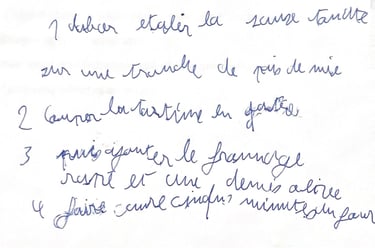 1 étaler la sauce tomate
sur une tranche de pais de mie
2 Couper la tartine en
3 puis ajouter le fromage
respé et une demis olive
4 faire cuire cinqus minutes du four